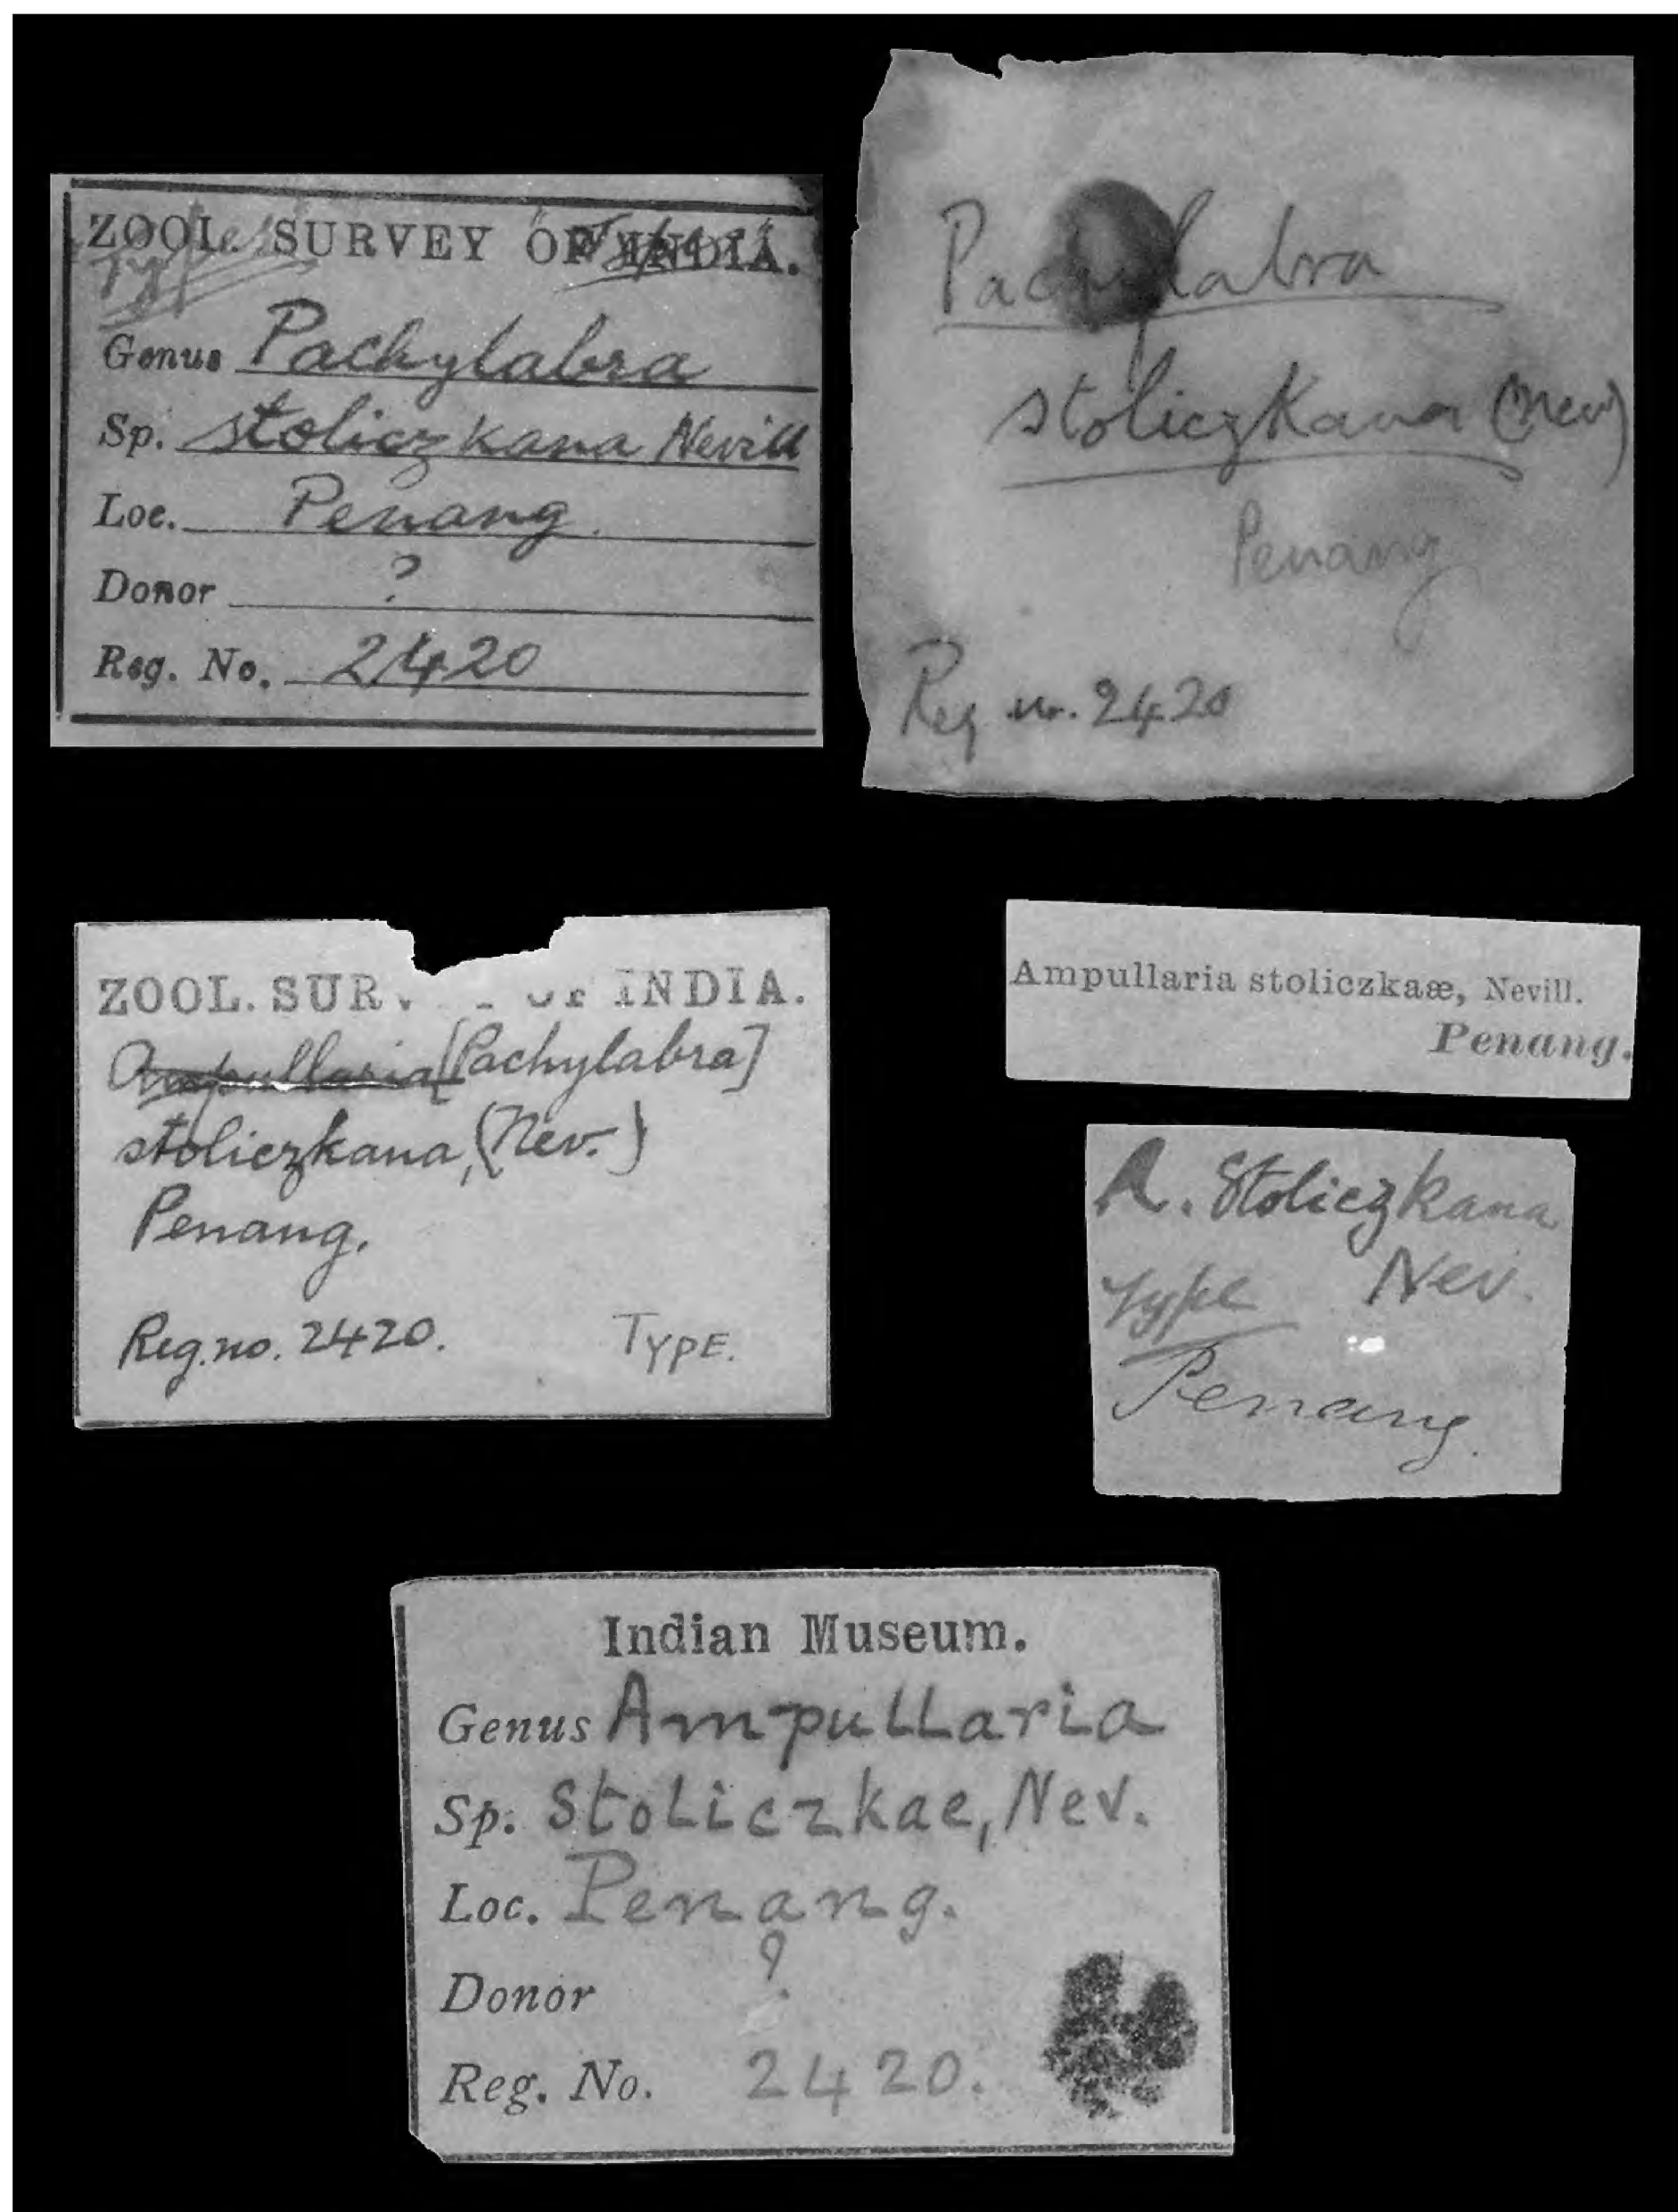 ZOOL. SURVEY OF INDIA.
Type
Genus Pachylabra
Sp. stoliczkana Nevill
Loc. Penang.
Donor ?
Reg. No. 2420
Pachylabra
stoliczkana (Nev)
Penang
Reg no. 2420
ZOOL. SUR OF INDIA.
Ampullaria [Pachylabra]
stoliczkana, (Nev.)
Penang.
Reg. no. 2420. TYPE.
Ampullaria stoliczkaæ, Nevill.
Penang.
A. Stoliczkana
Type Nev.
Penang.
Indian Museum.
Genus Ampullaria
Sp. Stoliczkae, Nev.
Loc. Penang.
Donor ?
Reg. No. 2420.